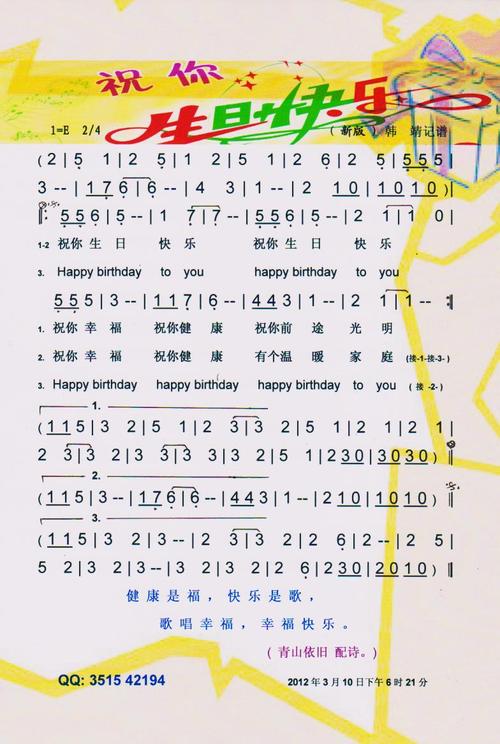 祝你
生日快乐
1=E 2/4 （新版）韩 靖记谱
( 2 | 5 1 | 2 5 | 1 2 | 5 1 | 2 5 | 5 5 5
3 -- | 1 7 6 | 6 -- | 4 4 3 | 1 -- | 2 | 1 0 | 1 0 1 0 )
5 5 | 6 | 5 -- | 1 | 7 | 7 -- | 5 5 | 6 | 5 -- | 2 | 1 | 1 0
1-2 祝你 生 日 快 乐 祝你 生 日 快 乐
3. Happy birthday to you happy birthday to you
5 5 5 | 3 -- | 1 1 7 | 6 -- | 4 4 3 | 1 -- | 2 | 1 -- | 1 --
1. 祝你 幸 福 祝你 健 康 祝你前 途 光 明
2. 祝你 幸 福 祝你 健 康 有个温 暖 家 庭 (接-1-接-3-)
3. Happy birthday happy birthday happy birthday to you (接 -2-)
1.
( 1 1 5 | 3 | 1 | 2 3 | 3 | 2 1 | 2 1 | 2 1
2 3 3 | 5 2 | 1 3 | 2 5 | 1 2 | 3 0 | 3 0 3 0 )
2.
( 1 1 5 | 3 -- | 1 7 6 | 6 -- | 4 4 3 | 1 -- | 2 | 1 0 | 1 0 1 0 )
3.
( 1 1 5 | 3 | 1 | 2 3 | 3 | 2 1 | 2 1 | 2 3 | 3
5 2 | 1 3 | 2 5 | 1 2 | 3 0 | 2 0 | 1 0 1 0 )
健康是福，快乐是歌，
歌唱幸福，幸福快乐。
（青山依旧 配诗。）
QQ: 3515 42194 2012 年 3 月 10 日下午 6 时 21 分